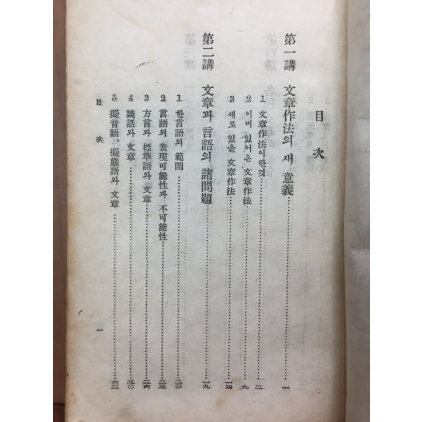 目次
第一講 文章作法의 새 意義 一
1 文章作法이란것 二
2 이미 있어온 文章作法 九
3 새로 있을 文章作法 一四
第二講 文章과 言語의 諸問題 一九
1 한言語의 範圍 二〇
2 言語의 表現可能性과 不可能性 二三
3 方言과 標準語와 文章 二六
4 談話와 文章 三〇
5 擬音語、擬態語와 文章 六二
目次 一